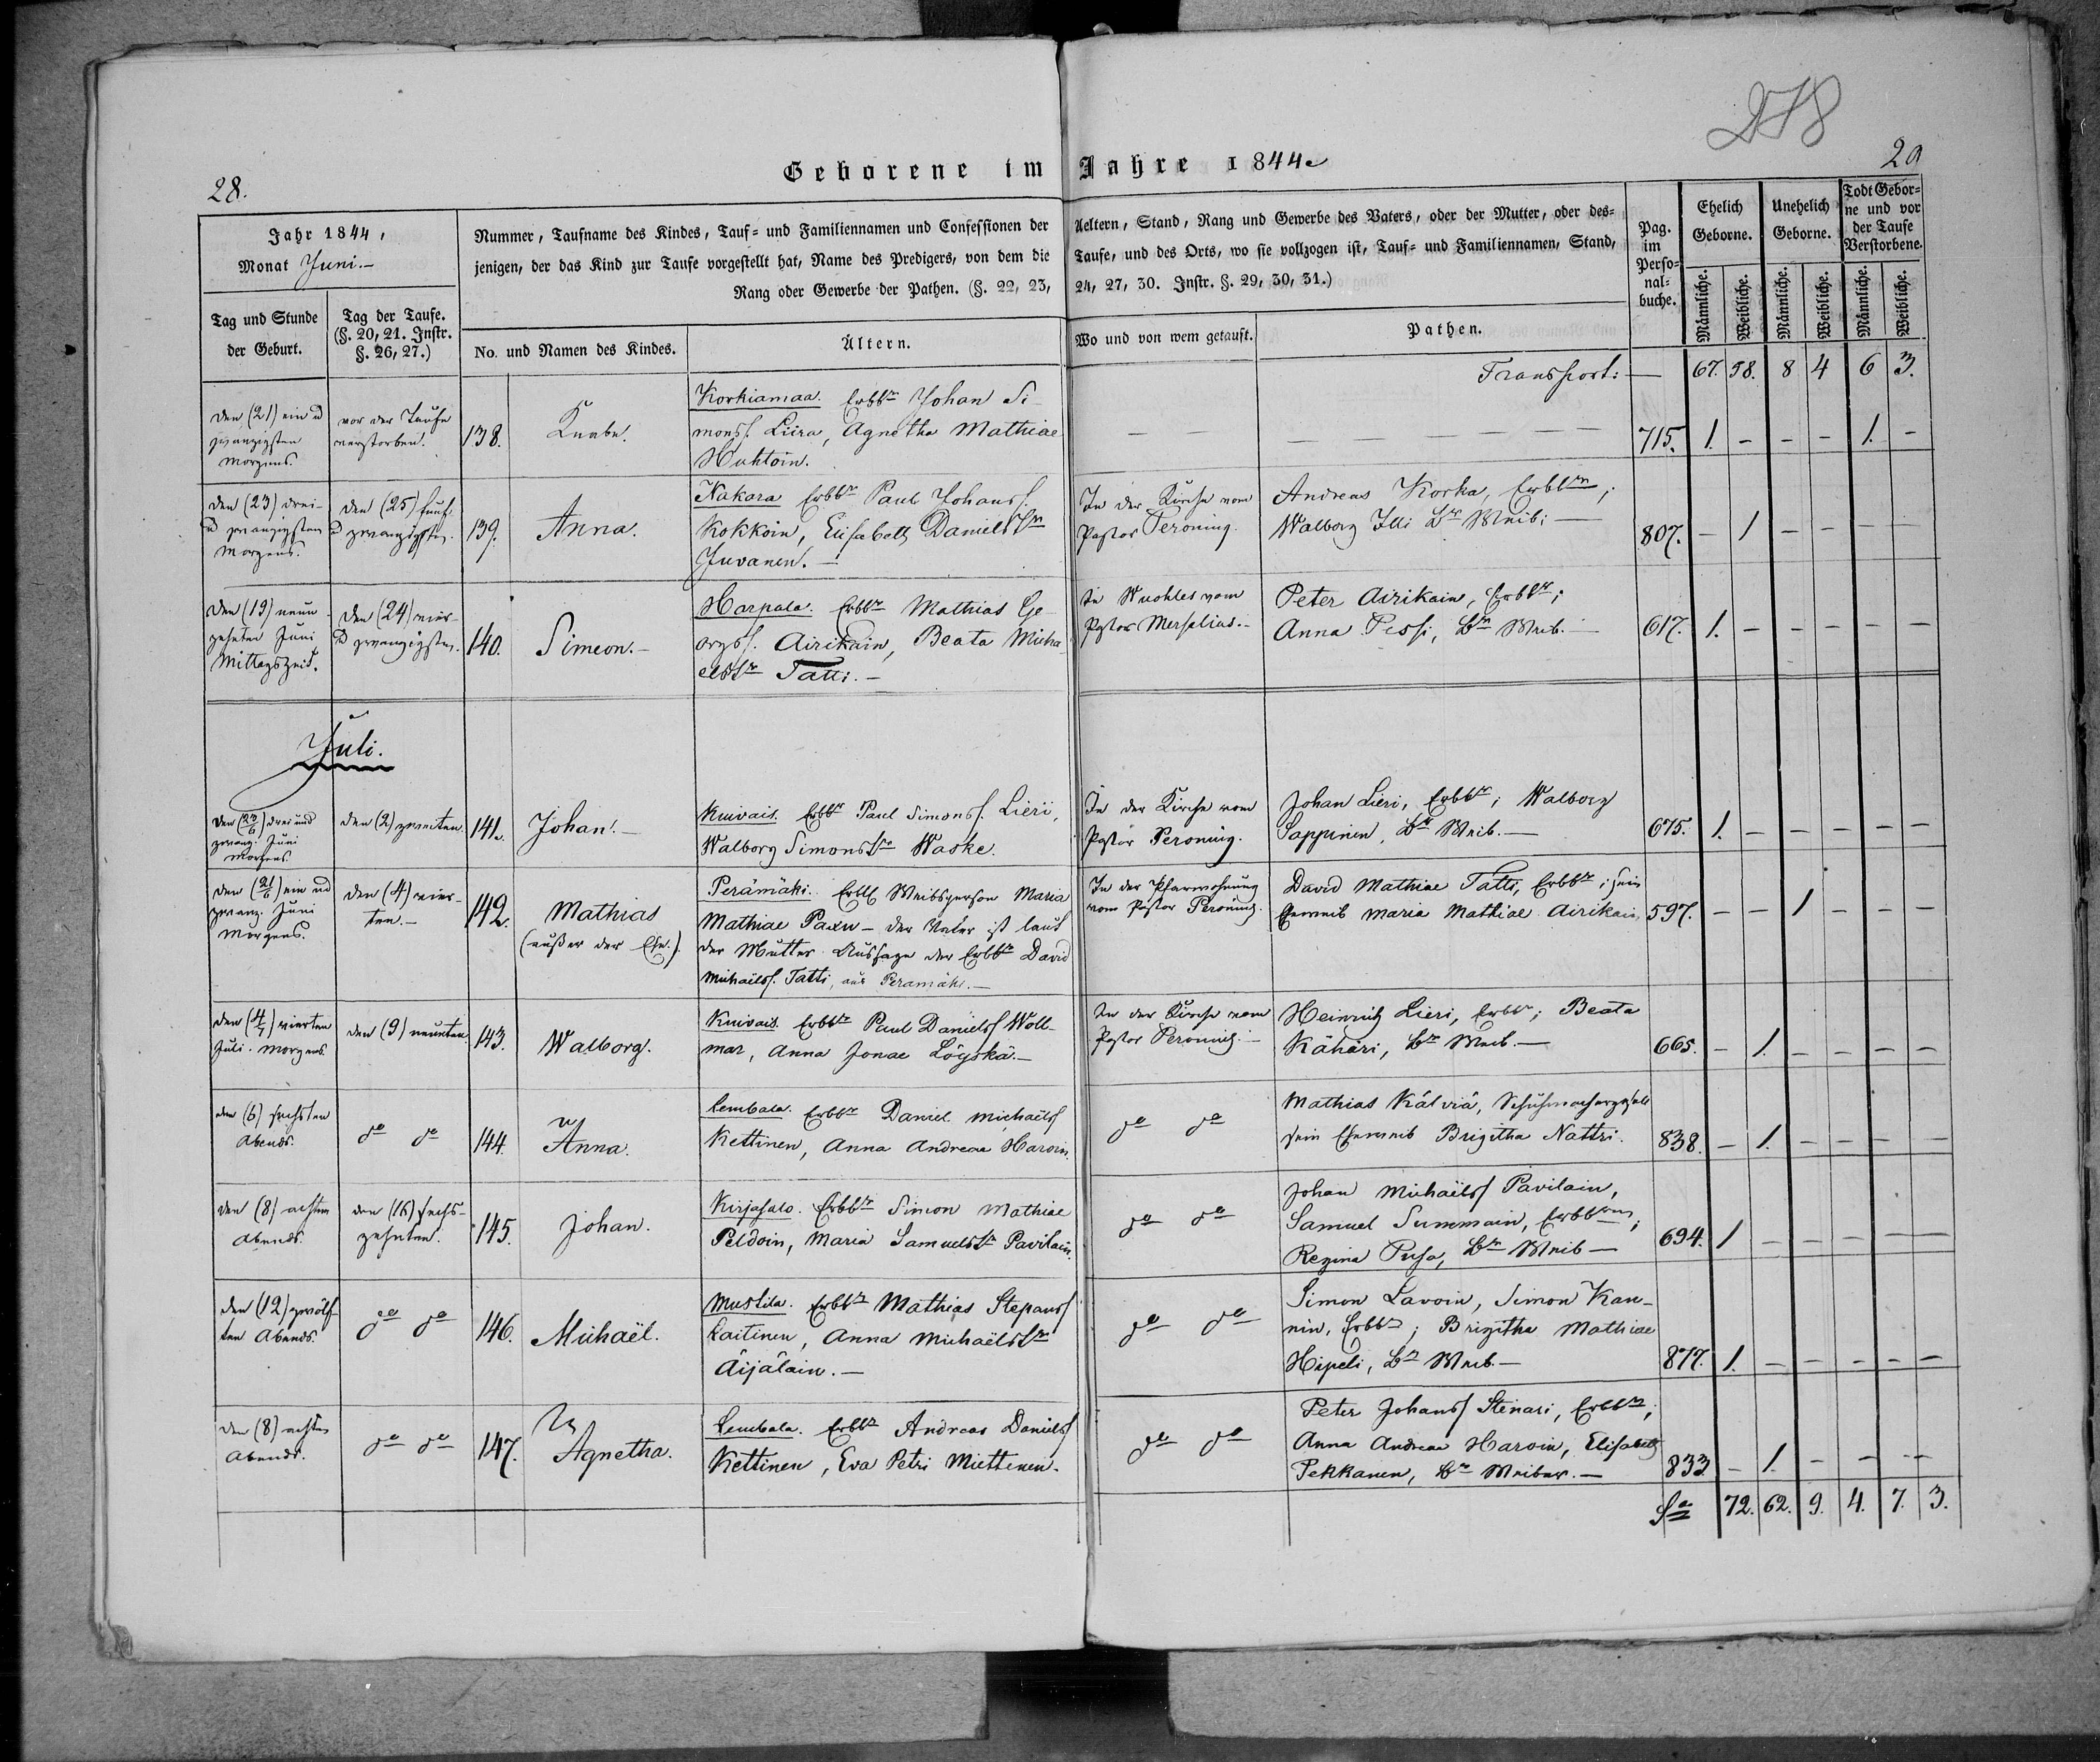 278
28.
29
Geborene im Jahre 1844.
Jahr 1844,
Monat Juni.
Nummer, Taufname des Kindes, Tauf- und Familiennamen und Confessionen der
jenigen, der das Kind zur Taufe vorgestellt hat, Name des Predigers, von dem die
Rang oder Gewerbe der Pathen. (§. 22, 23,
Aeltern, Stand, Rang und Gewerbe des Vaters, oder der Mutter, oder des-
Taufe, und des Orts, wo sie vollzogen ist, Tauf- und Familiennamen, Stand,
24, 27, 30. Instr. §. 29, 30, 31.)
Pag. im Perso- nal- buche.
Ehelich Geborne.
Unehelich Geborne.
Todt Gebor- ne und vor der Taufe Verstorbene.
Männliche. Weibliche. Männliche. Weibliche. Männliche. Weibliche.
Tag und Stunde der Geburt.
Tag der Taufe. (§. 20, 21. Instr. §. 26, 27.)
No. und Namen des Kindes.
Ältern.
Wo und von wem getauft.
Pathen.
Transport: — 67. 58. 8 4 6 3.
den (21) ein u
zwanzigsten
Morgens.
vor der Taufe
verstorben.
138.
Knabe.
Korkiamaa. Erbbr Johan Si-
monss. Liira, Agnetha Mathiae
Huhtoin.
— — — — — — — 715. 1. - - - 1. -
den (23) drei-
u zwanzigsten
Morgens.
den (25) fünf-
u zwanzigsten.
139.
Anna.
Nakara Erbbr Paul Johanss.
Kokkoin, Elisabeth Danielstr
Juvanen. —
In der Kirche vom
Pastor Peroning.
Andreas Korka, Erbbr;
Walborg Illi Br Weib; —
807. - 1 - - - -
den (19) neun-
zehnten Juni
Mittagszeit.
den (24) vier-
u zwanzigsten.
140.
Simeon. -
Harpala. Erbbr Mathias Ge-
orgss. Airikain, Beata Micha-
elstr Tatti. -
In Wuohles vom
Pastor
Peter Airikain, Erbbr;
Anna Pessi, Br Weib. —
617. 1. - - - - -
Juli.
den (23/6) drei und
zwanz. Juni
Morgens
den (2) zweiten.
141.
Johan. -
Kuivais. Erbbr Paul Simonss. Lieri,
Walborg Simonstr Waske.
In der Kirche vom
Pastor Peroning.
Johan Lieri, Erbbr; Walborg
Sappinen, Br Weib. —
675. 1. - - - - -
den (21/6) ein und
zwanz. Juni
Morgens.
den (4) vier-
ten. -
142.
Mathias
(außer der Ehe.)
Perämäki. Erbb Weibsperson Maria
Mathiae Paxu - der Vater ist laut
der Mutter Aussage der Erbbr David
Michaëlss. Tatti, aus Perämäki. —
In der Pfarrwohnung
vom Pastor Peroning.
David Mathiae Tatti, Erbbr; sein
Eheweib Maria Mathiae Airikain,
597. - - 1 - - -
den (4/7) vierten
Juli. Morgens
den (9) neunten.
143.
Walborg.
Kuivais. Erbbr Paul Danielss Woll-
mar, Anna Jonae Löyskä. —
In der Kirche vom
Pastor Peroning. —
Heinrich Lieri, Erbbr; Beata
Kähäri, Br Weib. —
665. - 1. - - - -
den (6) sechsten
Abends.
do do
144.
Anna.
Lembala. Erbbr Daniel Michaëlss
Kettinen, Anna Andreae Haroin.
do do
Mathias Kälviä, Schuhmachergesell
sein Eheweib Brigitha Nattri.
838. - 1. - - - -
den (8) achten
Abends.
den (16) sechs-
zehnten.
145.
Johan.
Kirjasalo. Erbbr Simon Mathiae
Peldoin, Maria Samuelstr Pavilain.
do do
Johan Michaëlss Pavilain,
Samuel Summain, Erbbrn;
Regina Pusa, Br Weib —
694. 1 - - - - -
den (12) zwölf-
ten Abends.
do do
146.
Michaël.
Mustila. Erbbr Mathias Stepanss
Kaitinen, Anna Michaëlstr
Äijäläin. —
do do
Simon Lavoin, Simon Kan-
nin, Erbbr; Brigitha Mathiae
Hipeli, Br Weib. —
877. 1. - - - - -
den (8) achten
Abends.
do do
147.
Agnetha.
Lembala. Erbbr Andreas Danielss
Kettinen, Eva Petri Miettinen.
do do
Peter Johanss Stenari, Erbbr;
Anna Andreae Haroin, Elisabeth
Pekkanen, Br Weiber. —
833 - 1. - - - -
Sa 72. 62. 9. 4. 7. 3.